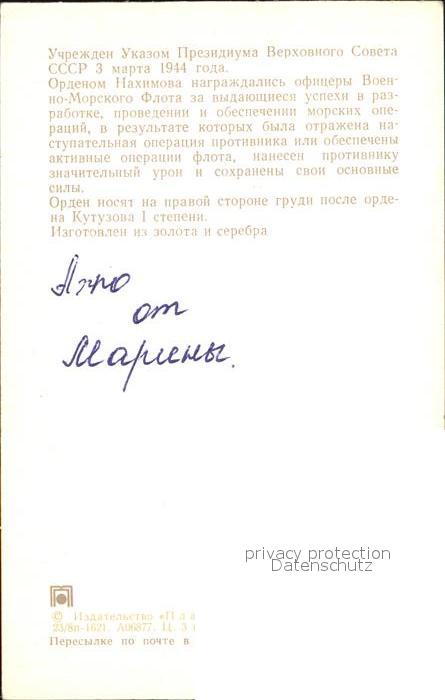 Учрежден Указом Президиума Верховного Совета
СССР 3 марта 1944 года.
Орденом Нахимова награждались офицеры Воен-
но-Морского Флота за выдающиеся успехи в раз-
работке, проведении и обеспечении морских опе-
раций, в результате которых была отражена на-
ступательная операция противника или обеспечены
активные операции флота, нанесен противнику
значительный урон и сохранены свои основные
силы.
Орден носят на правой стороне груди после орде-
на Кутузова I степени.
Изготовлен из золота и серебра
от
Марины.
privacy protection
Datenschutz
© Издательство «Пла
23/8п-1621. А06877. Ц. 3
Пересылке по почте в